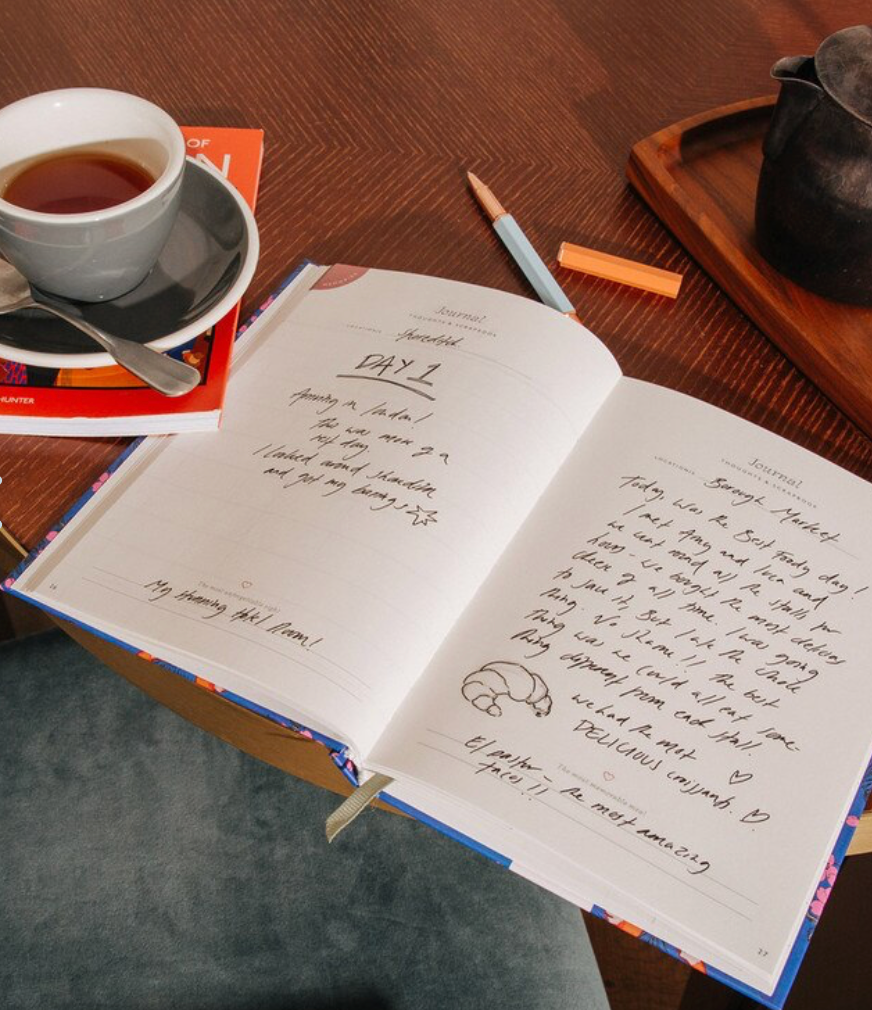 OF
N
HUNTER
Journal
THOUGHTS & SCRAPBOOK
LOCATION(S) Shoreditch
DAY 1
Arriving in London!
This was more of a
rest day.
I looked around Shoreditch
and got my bearings
The most unforgettable sight
My stunning Hotel Room!
16
Journal
THOUGHTS & SCRAPBOOK
LOCATION(S) Borough Market
Today, was the Best Foody day!
I met Amy and Luca and
we went round all the stalls for
hours - we bought the most delicious
cheese of all time. I was going
to save it, But I ate the whole
thing. No shame!! The best
thing was we could all eat some-
thing different from each stall.
we had the most
DELICIOUS croissants. ♡
The most memorable meal
El pastor - the most amazing
tacos!!
17